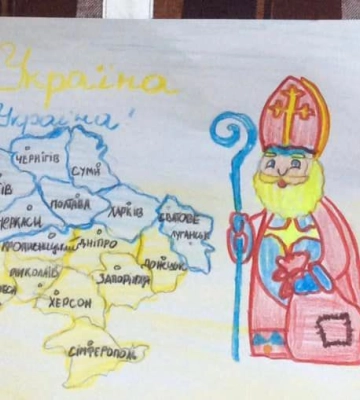 Україна
Україна!
ЧЕРНІГІВ
СУМИ
ЇВ
ПОЛТАВА
ХАРКІВ
СВАТОВЕ
ЛУГАНСЬК
ЕРКАСИ
КРОПИВНИЦЬКИЙ
ДНІПРО
ДОНЕЦЬК
МИКОЛАЇВ
ЗАПОРІЖЖЯ
ХЕРСОН
СІМФЕРОПОЛЬ